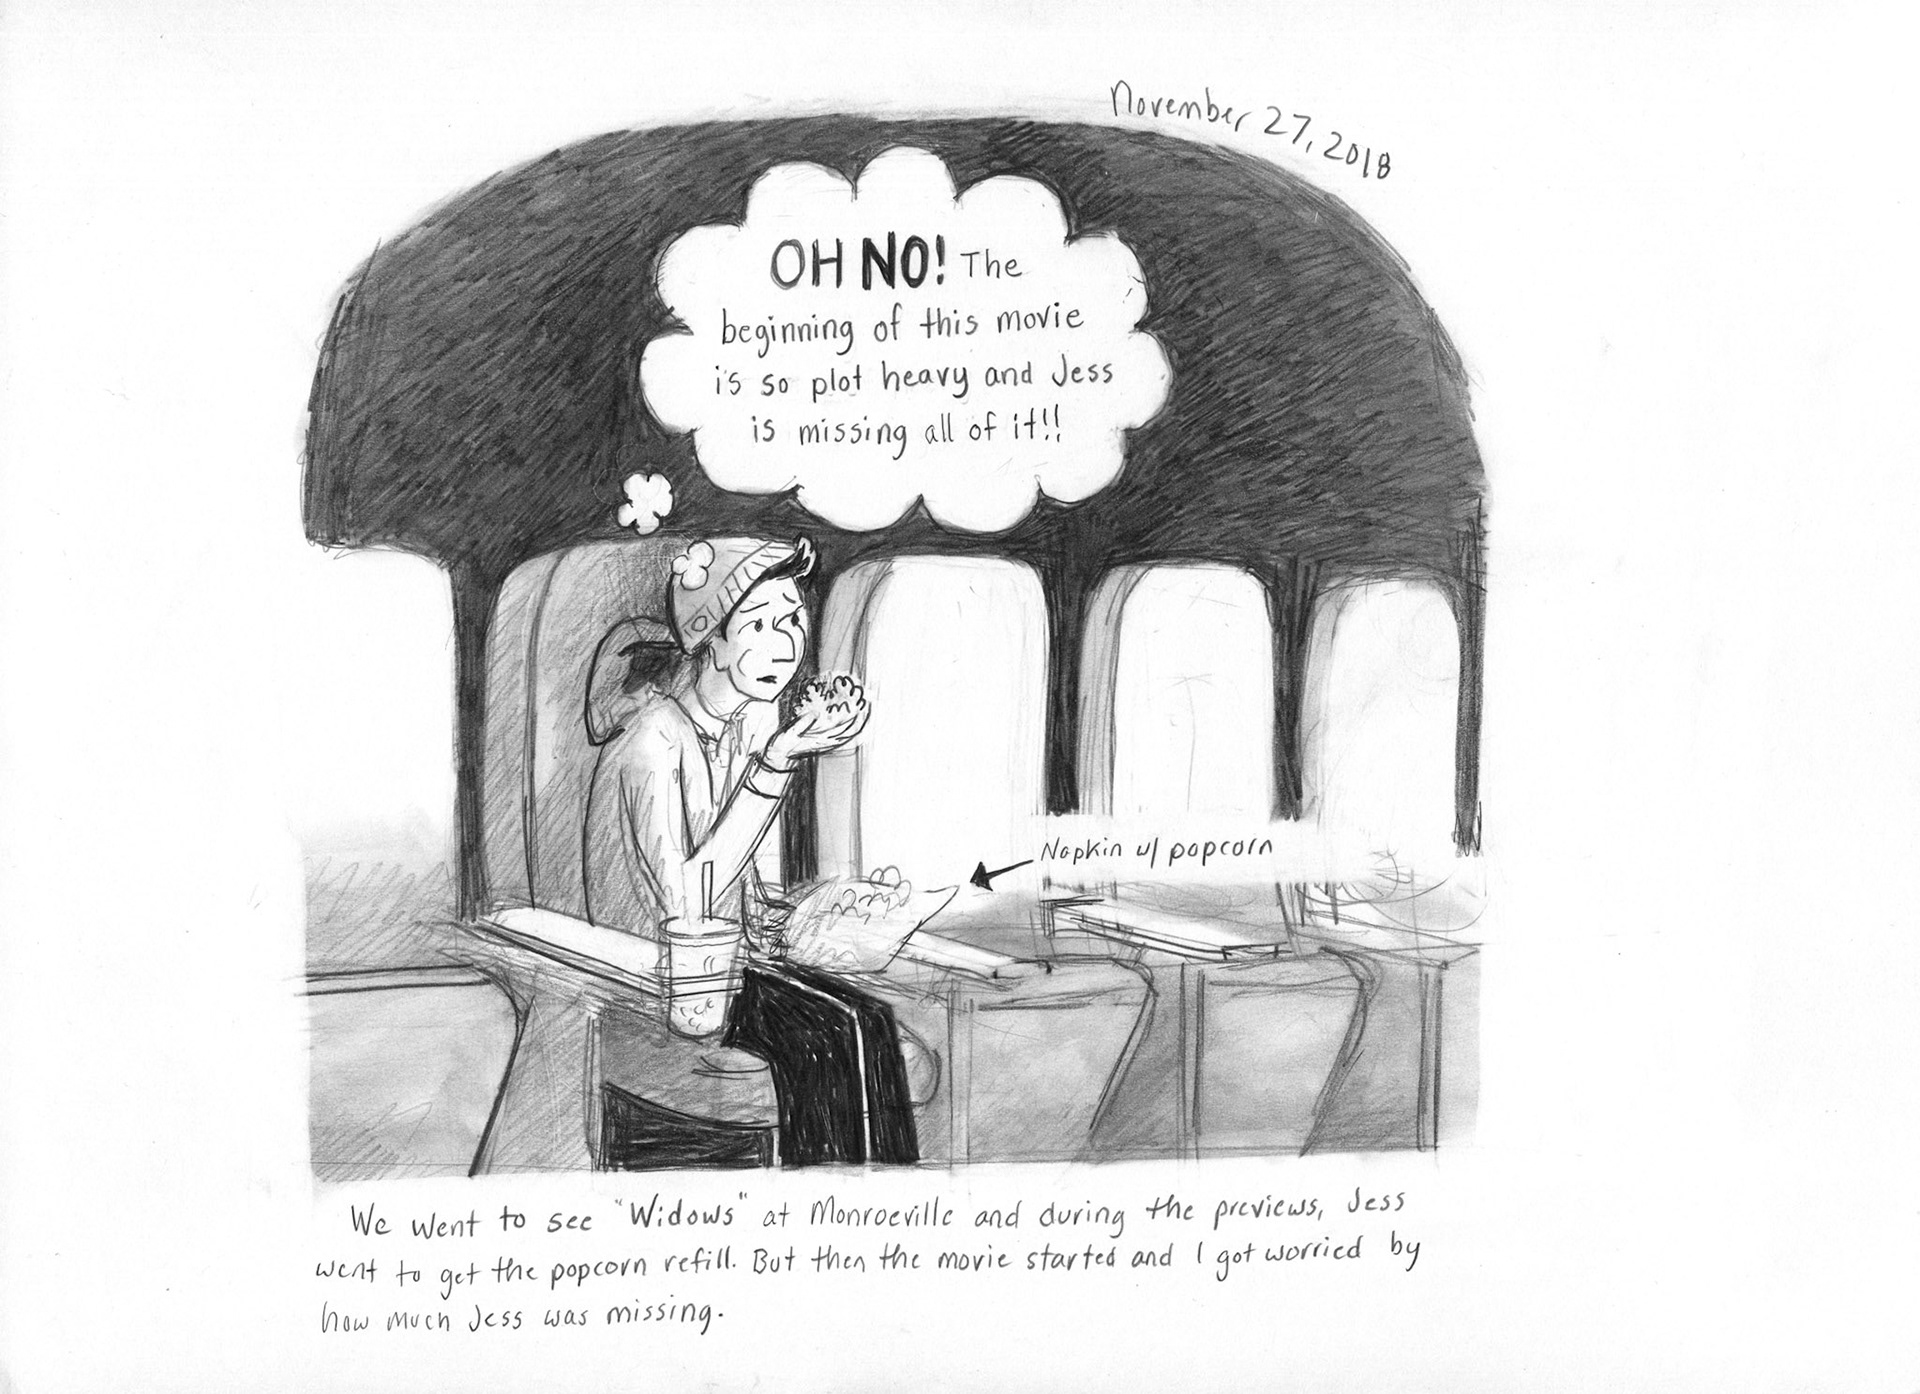 November 27, 2018
OH NO! The
beginning of this movie
is so plot heavy and Jess
is missing all of it!!
Napkin w/ popcorn
We went to see "Widows" at Monroeville and during the previews, Jess
went to get the popcorn refill. But then the movie started and I got worried by
how much Jess was missing.